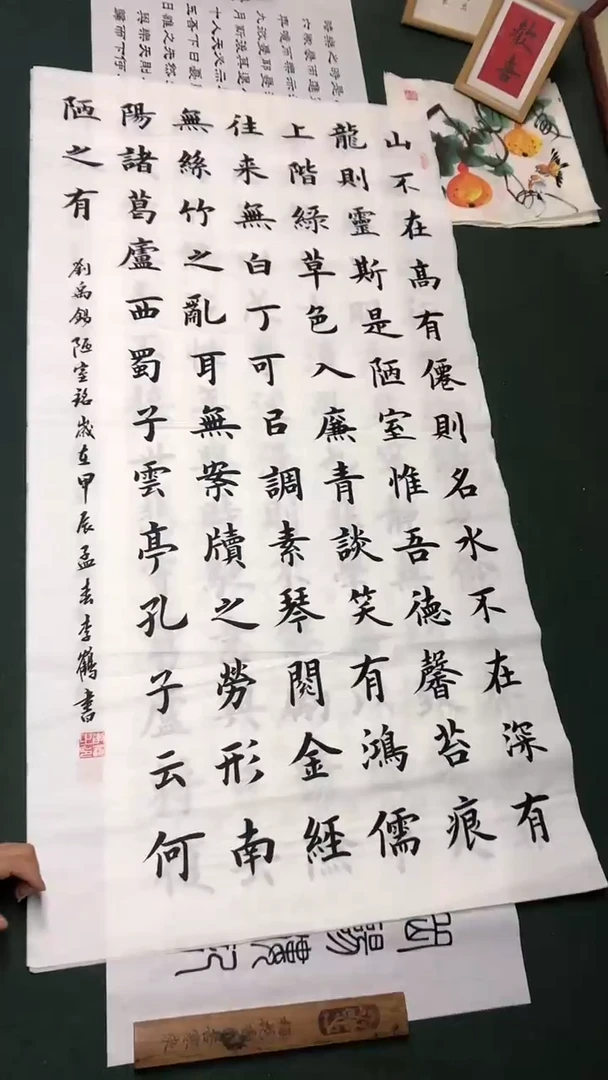 山不在高有僊則名水不在深有
龍則靈斯是陋室惟吾德馨苔痕
上階綠草色入廉青談笑有鴻儒
往来無白丁可㠯調素琴閱金經
無絲竹之亂耳無案牘之勞形南
陽諸葛廬西蜀子雲亭孔子云何
陋之有
劉禹錫陋室銘歲在甲辰孟春李鶴書
歡喜